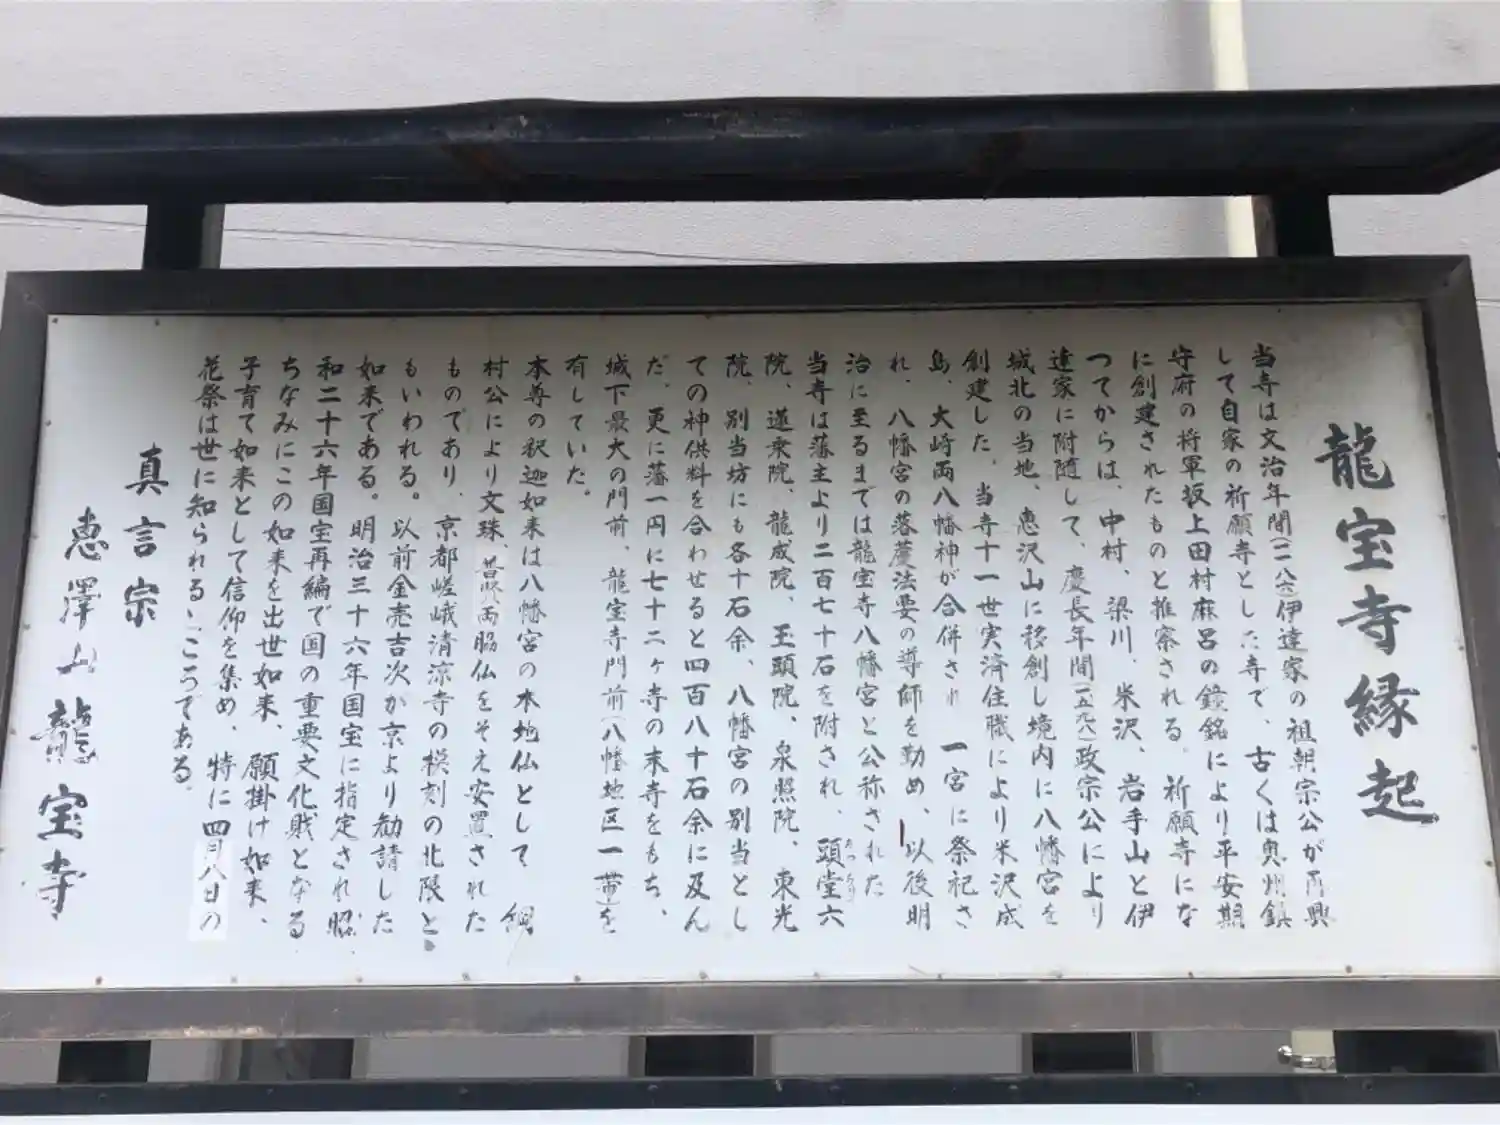 龍宝寺縁起
当寺は文治年間(一一八六)伊達家の祖朝宗公が再興
して自家の祈願寺とした寺で、古くは奥州鎮
守府の将軍坂上田村麻呂の鐘銘により平安期
に創建されたものと推察される。祈願寺にな
つてからは、中村、梁川、米沢、岩手山と伊
達家に附随して、慶長年間(一五九六)政宗公により
城北の当地、恵沢山に移創し境内に八幡宮を
創建した。当寺十一世実済住職により米沢成
島、大崎両八幡神が合併され一宮に祭祀さ
れ、八幡宮の落慶法要の導師を勤め、以後明
治に至るまでは龍宝寺八幡宮と公称された
当寺は藩主より二百七十石を附され、頭堂六
院、蓮乗院、龍成院、玉頭院、泉照院、東光
院、別当坊にも各十石余、八幡宮の別当とし
ての神供料を合わせると四百八十石余に及ん
だ。更に藩一円に七十二ヶ寺の末寺をもち、
城下最大の門前、龍宝寺門前(八幡地区一帯)を
有していた。
本尊の釈迦如来は八幡宮の本地仏として 綱
村公により文珠、普賢両脇仏をそえ安置された
ものであり、京都嵯峨清凉寺の模刻の北限と
もいわれる。以前金売吉次が京より勧請した
如来である。明治三十六年国宝に指定され昭
和二十六年国宝再編で国の重要文化財となる
ちなみにこの如来を出世如来、願掛け如来、
子育て如来として信仰を集め、特に四月八日の
花祭は世に知られるところである。
真言宗
恵澤山龍宝寺